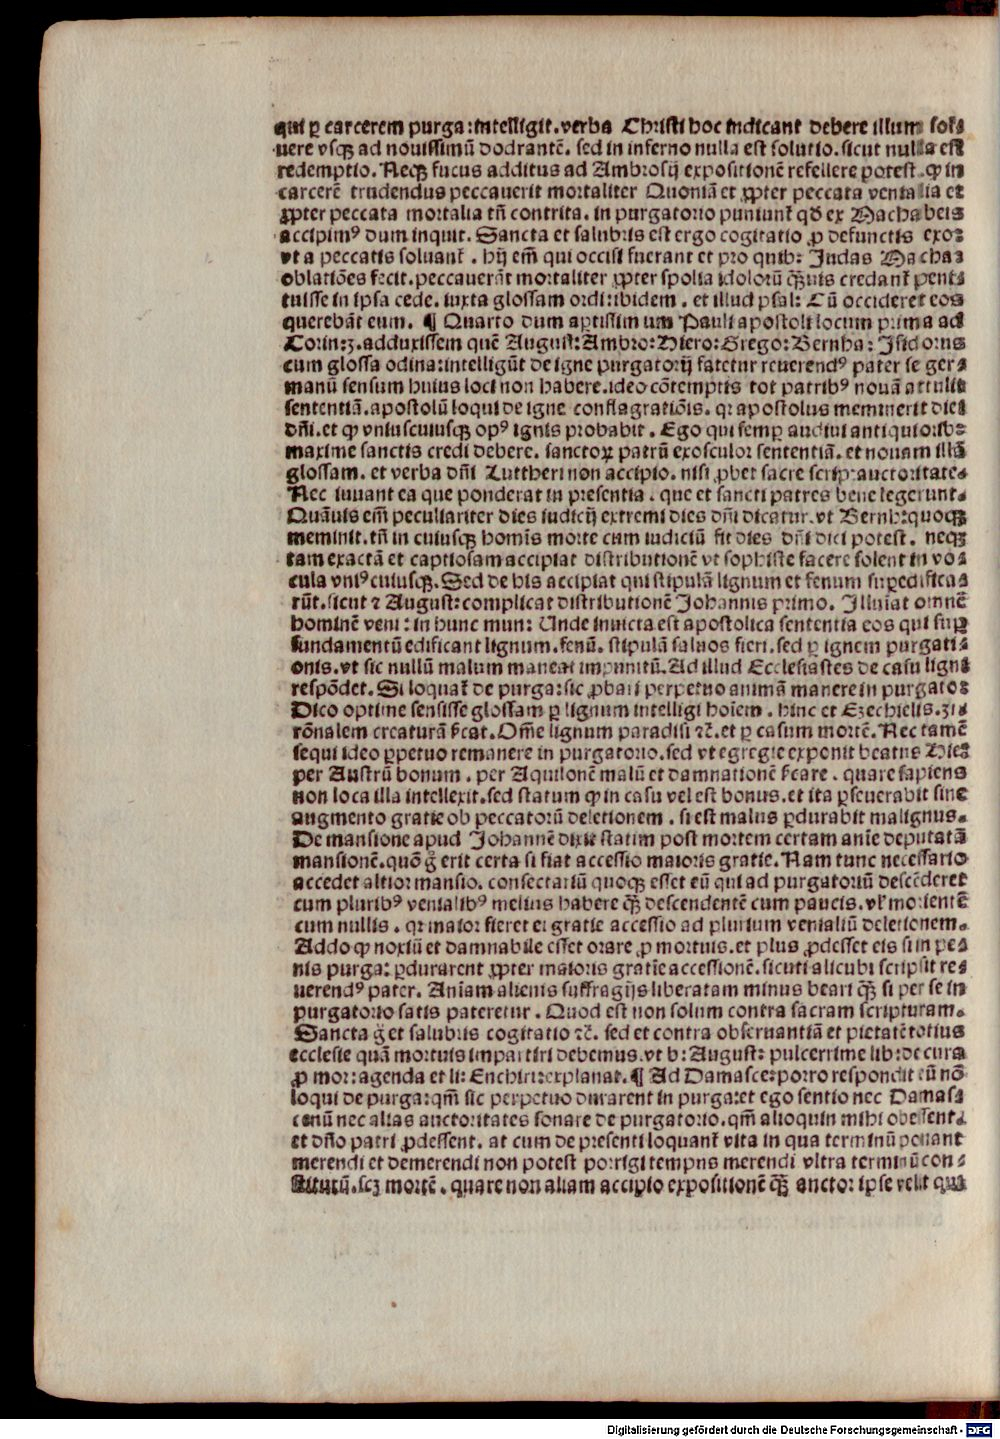 qui ꝑ carcerem purga:intelligit.verba Christi hoc indicant debere illum sol⸗
uere vsqꝫ ad nouissimū dodrantē. sed in inferno nulla est solutio.sicut nulla est
redemptio. Neqꝫ fucus additus ad Ambrosij expositionē refellere potest. ꝙ in
carcerē trudendus peccauerit mortaliter Quoniā et ꝓpter peccata venialia et
ꝓpter peccata mortalia tn̄ contrita. in purgatorio puniunt̃ qđ ex Machabeis
accipimꝰ dum inquit. Sancta et salubris est ergo cogitatio ꝓ defunctis exo⸗
vt a peccatis soluant̃. hij em̄ qui occisi fuerant et pro quib: Judas Macha⸗
oblatiōes fecit. peccauerāt mortaliter ꝓpter spolia idolorū qꝫ̃uis credant̃ peni
tuisse in ipsa cede. iuxta glossam ordi:ibidem. et illud psal: Cū occideret eos
querebāt eum. ¶ Quarto dum aptissimum Pauli apostoli locum prima ad
Corin:3.adduxissem quē August:Ambro:Hiero:Grego:Bernha: Isidorus
cum glossa odina:intelligūt de igne purgatorij fatetur reuerendꝰ pater se ger⸗
manū sensum huius loci non habere.ideo cōtemptis tot patribꝰ nouā attulit
sententiā.apostolū loqui de igne conflagratiōis. qr apostolus meminerit diei
dn̄i.et ꝙ vniuscuiusqꝫ opꝰ ignis probabit. Ego qui semꝑ audiui antiquiorib⸗
maxime sanctis credi debere. sanctoꝝ patrū exosculor sententiā. et nouam illā
glossam. et verba dn̄i Luttheri non accipio. nisi ꝓbet sacre scrip:auctoritate.
Nec iuuant ea que ponderat in presentia. que et sancti patres bene legerunt.
Quāuis em̄ peculiariter dies iudicij extremi dies dn̄i dicatur.vt Bernh:quoqꝫ
meminit. tn̄ in cuiusqꝫ homīs morte cum iudiciū fit dies dn̄i dici potest. neqꝫ
tam exactā et captiosam accipiat distributionē vt sophiste facere solent in vo⸗
cula vniꝰcuiusqꝫ. Sed de his accipiat qui stipulā lignum et fenum supedifica⸗
rūt.sicut ⁊ August:complicat distributionē Johannis primo. Illuīat omnē
hominē veni: in hunc mun: Unde inuicta est apostolica sententia eos qui suꝑ
fundamentū edificant lignum.fenū. stipulā saluos fieri. sed ꝑ ignem purgati⸗
onis. vt sic nullū malum maneat impunitū. Ad illud Ecclesiastes de casu ligni
respōdet. Si loquat̃ de purga:sic ꝓbari perpetuo animā manere in purgato⸗
Dico optime sensisse glossam ꝑ lignum intelligi hoīem. hinc et Ezechielis.31.
rōnalem creaturā s̄cat. Om̄e lignum paradisi ⁊c̄. et ꝑ casum mortē. Nec tamē
sequi ideo ꝑpetuo remanere in purgatorio.sed vt egregie exponit beatus Hie⸗
per Austrū bonum. per Aquilonē malū et damnationē s̄care. quare sapiens
non loca illa intellexit.sed statum ꝙ in casu vel est bonus.et ita ꝑseuerabit sine
augmento gratie ob peccatorū deletionem. si est malus ꝑdurabit malignus.
De mansione apud Johannē dixit statim post mortem certam anīe deputatā
mansionē.quō g̊ erit certa si fiat accessio maioris gratie. Nam tunc necessario
accedet altior mansio. consectariū quoqꝫ esset eū qui ad purgatoriū descēderet
cum pluribꝰ venialibꝰ melius habere qꝫ̃ descendentē cum paucis. vl̓ morientē
cum nullis. qr maior fieret ei gratie accessio ad plurium venialiū deletionem.
Addo ꝙ noxiū et damnabile esset orare ꝓ mortuis. et plus ꝓdesset eis si in pe⸗
nis purga: ꝑdurarent ꝓpter maioris gratie accessionē.sicuti alicubi scripsit re⸗
uerendꝰ pater. Aniam alienis suffragijs liberatam minus beari qꝫ̃ si per se in
purgatorio satis pateretur. Quod est non solum contra sacram scripturam.
Sancta g̊ et salubris cogitatio ⁊c̄. sed et contra obseruantiā et pietatē totius
ecclesie quā mortuis impartiri debemus. vt b: August: pulcerrime lib:de cura
ꝓ mor:agenda et li: Enchiri:explanat. ¶ Ad Damasce:porro respondit eū nō
loqui de purga:qm̄ sic perpetuo durarent in purga:et ego sentio nec Damas⸗
cenū nec alias auctoritates sonare de purgatorio. qm̄ alioquin mihi obessent.
et dn̄o patri ꝓdessent. at cum de presenti loquant̃ vita in qua terminū ponant
merendi et demerendi non potest porrigi tempus merendi vltra terminū con⸗
stitutū.scꝫ mortē. quare non aliam accipio expositionē qꝫ̃ auctor ipse velit qui
Digitalisierung gefördert durch die Deutsche Forschungsgemeinschaft - DFG